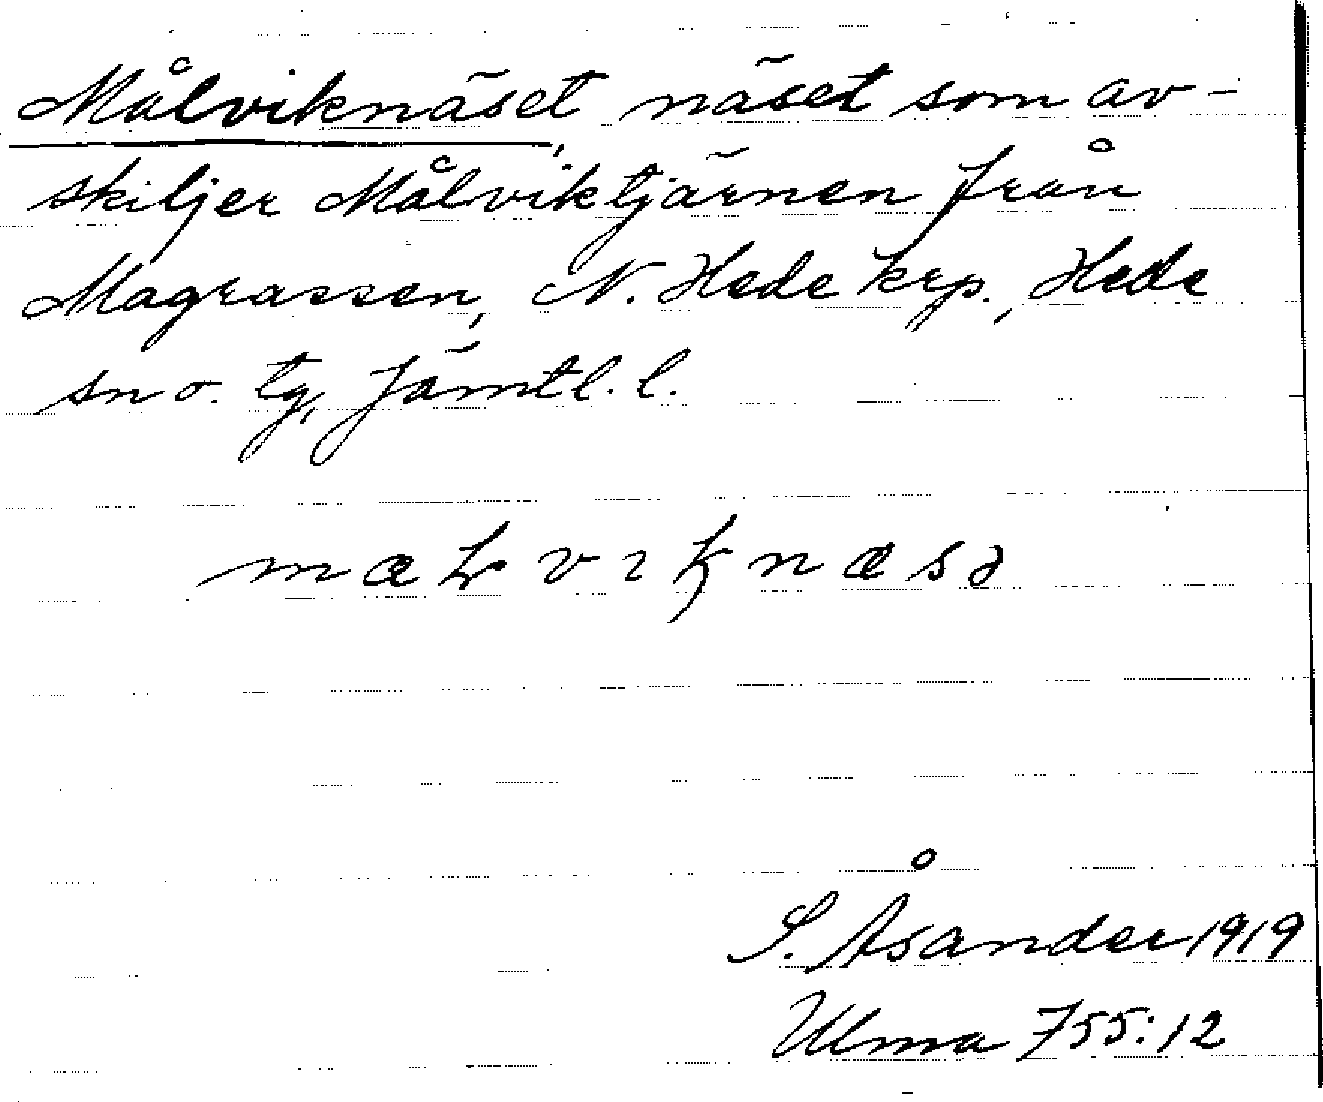 Målviknäset, näset som av-
skiljer Målviktjärnen från
Magrassen, N. Hede krp., Hede
sn o. tg, Jämtl. l.
S. Åsander 1919
Ulma 755:12